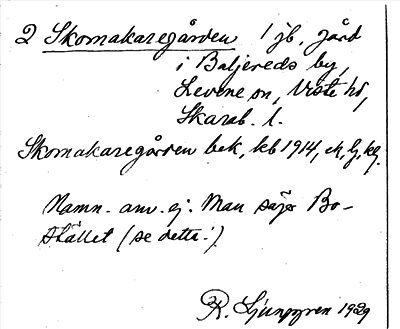 2 Skomakaregården 1 jb. gård
i Baljereds by,
Levene sn, Viste hd,
Skarab. l.
Skomakaregården bek, kb 1914,
Namn. anv. ej. Man säger Bo-
stället (se detta!)
R. Ljunggren 1939